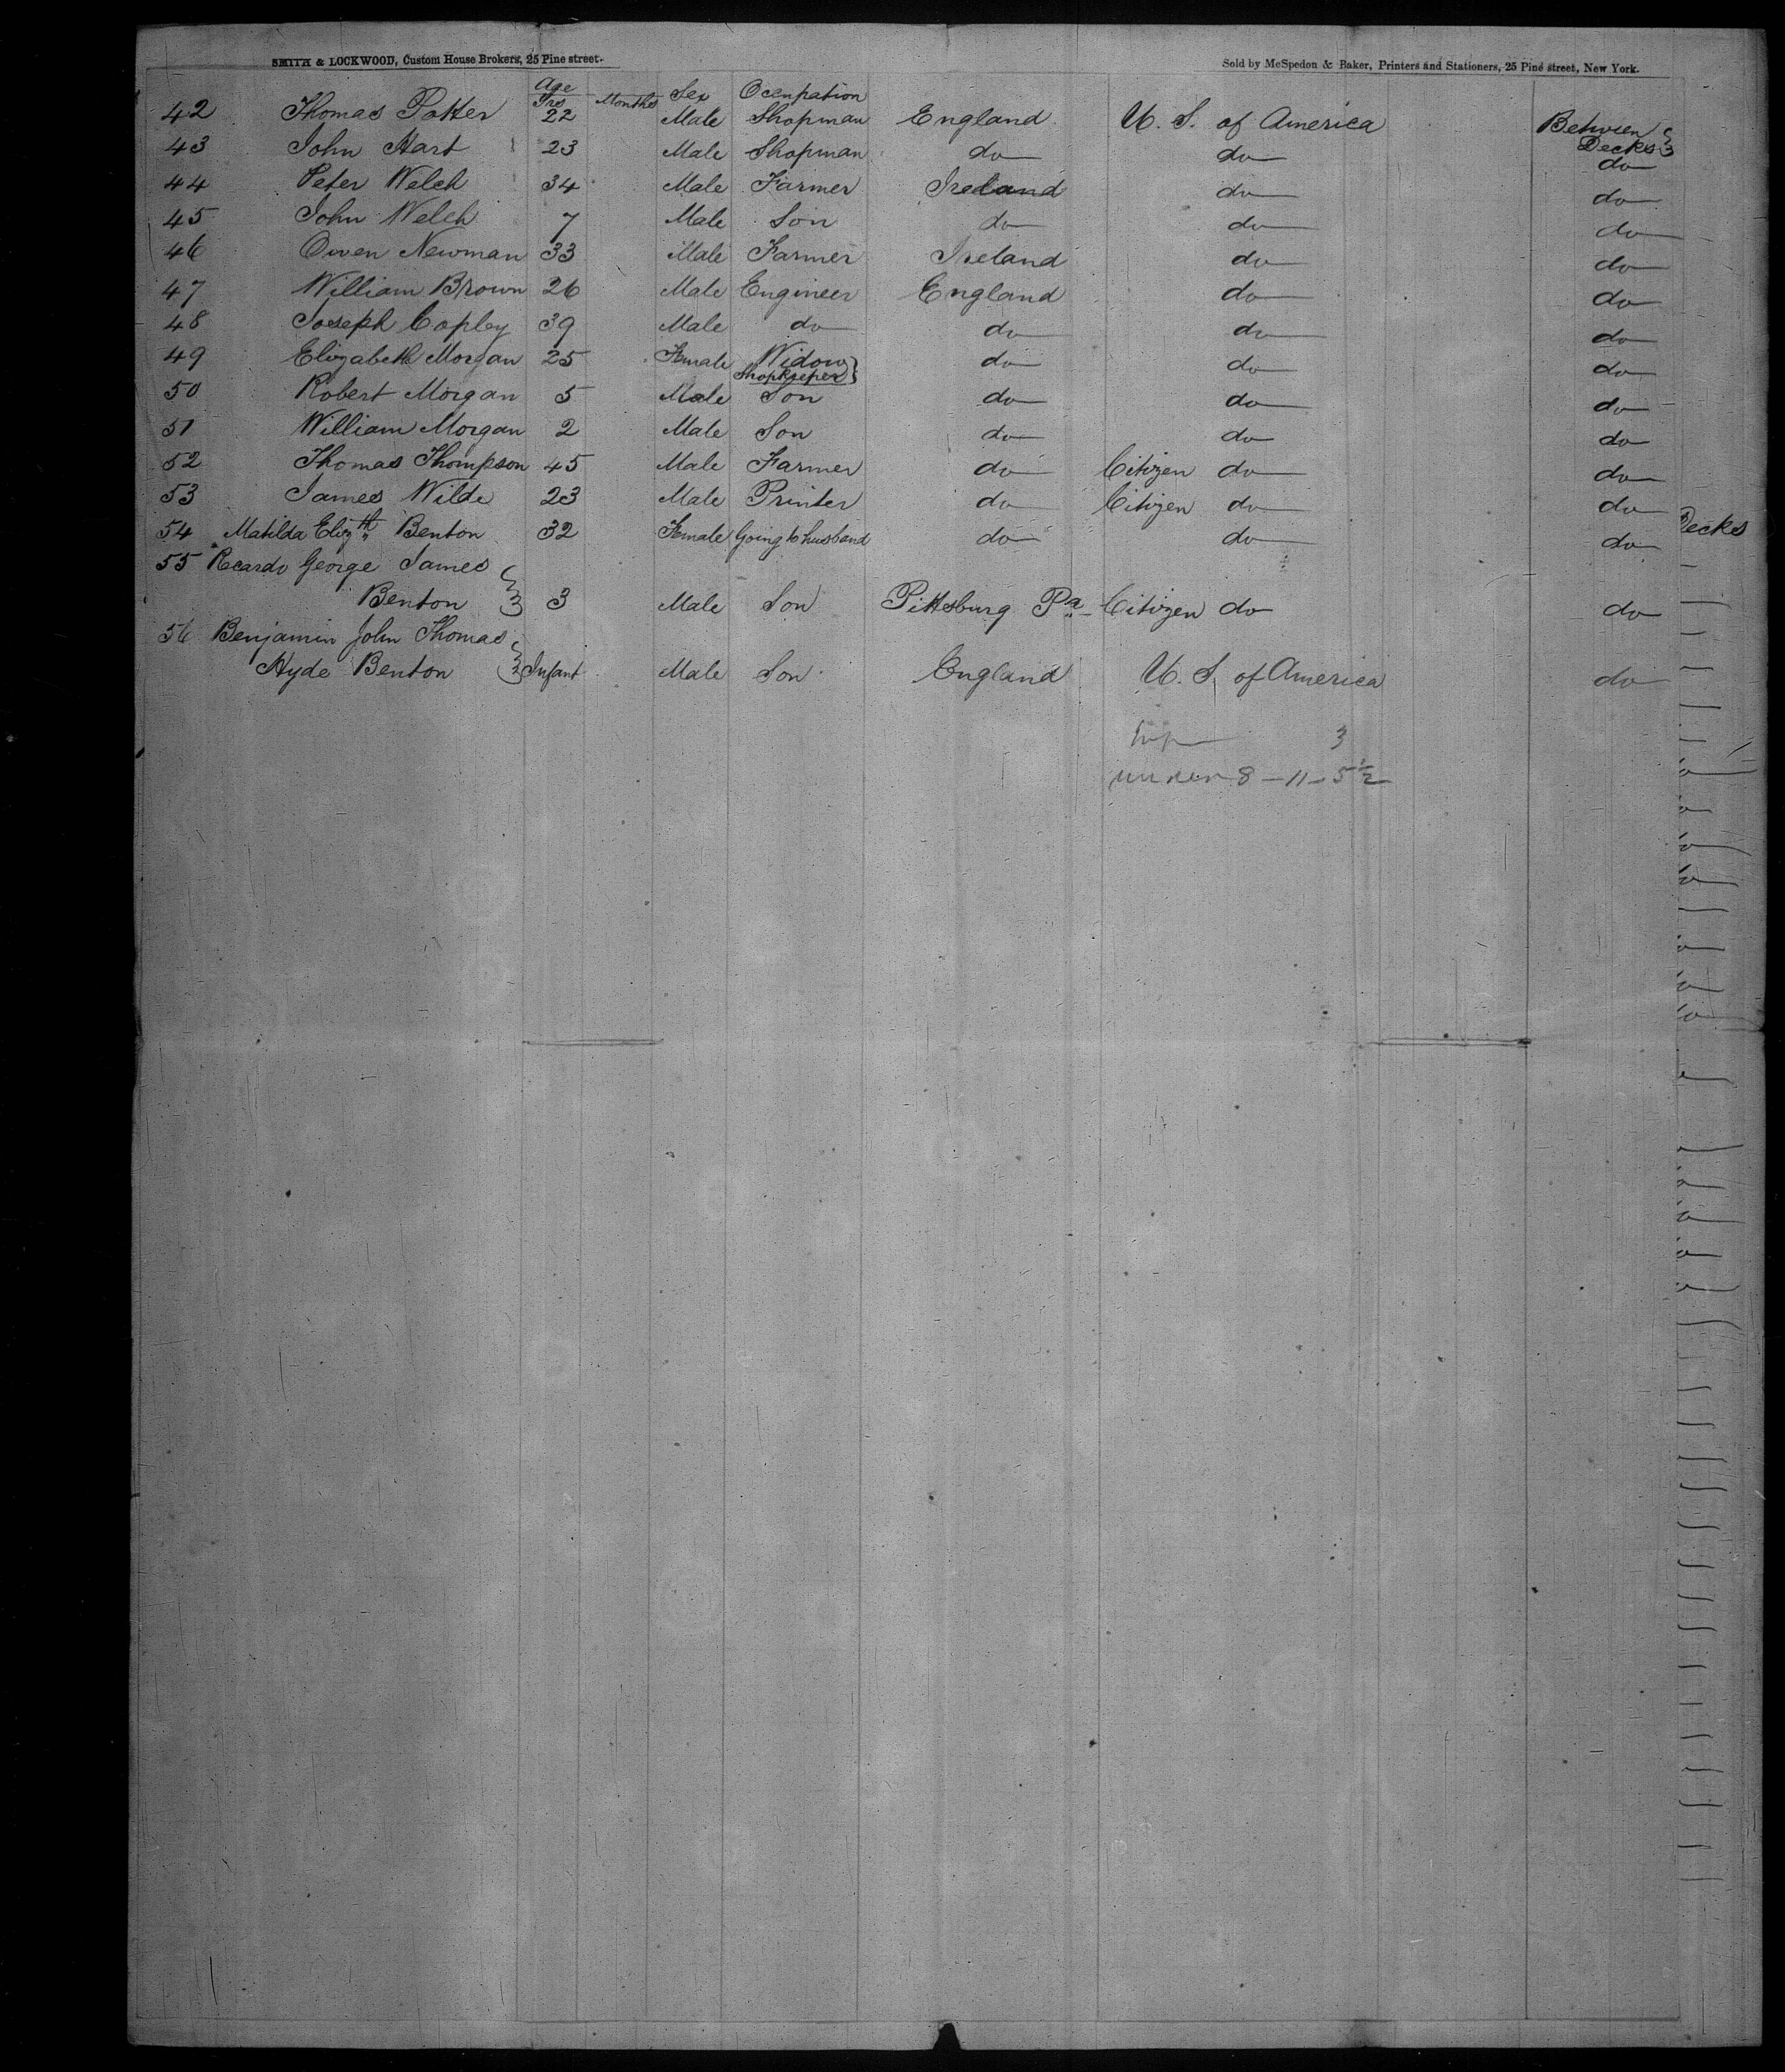 SMITH & LOCKWOOD, Custom House Brokers, 25 Pine street. Sold by McSpedon & Baker, Printers and Stationers, 25 Pine street, New York.
Age
Yrs Months Sex Occupation
42 Thomas Potter 22 Male Shopman England U. S. of America Between Decks
43 John Hart 23 Male Shopman do do do
44 Peter Welch 34 Male Farmer Ireland do do
45 John Welch 7 Male Son do do do
46 Owen Newman 33 Male Farmer Ireland do do
47 William Brown 26 Male Engineer England do do
48 Joseph Copley 39 Male do do do do
49 Elizabeth Morgan 25 Female Widow Shopkeeper do do do
50 Robert Morgan 5 Male Son do do do
51 William Morgan 2 Male Son do do do
52 Thomas Thompson 45 Male Farmer do Citizen do do
53 James Wilde 23 Male Printer do Citizen do do
54 Matilda Elizth Benton 32 Female Going to husband do do do Decks
55 Ricardo George James
Benton 3 Male Son Pittsburg Pa Citizen do do
56 Benjamin John Thomas
Hyde Benton Infant Male Son England U. S. of America do
3
under 8 - 11 - 5 1/2